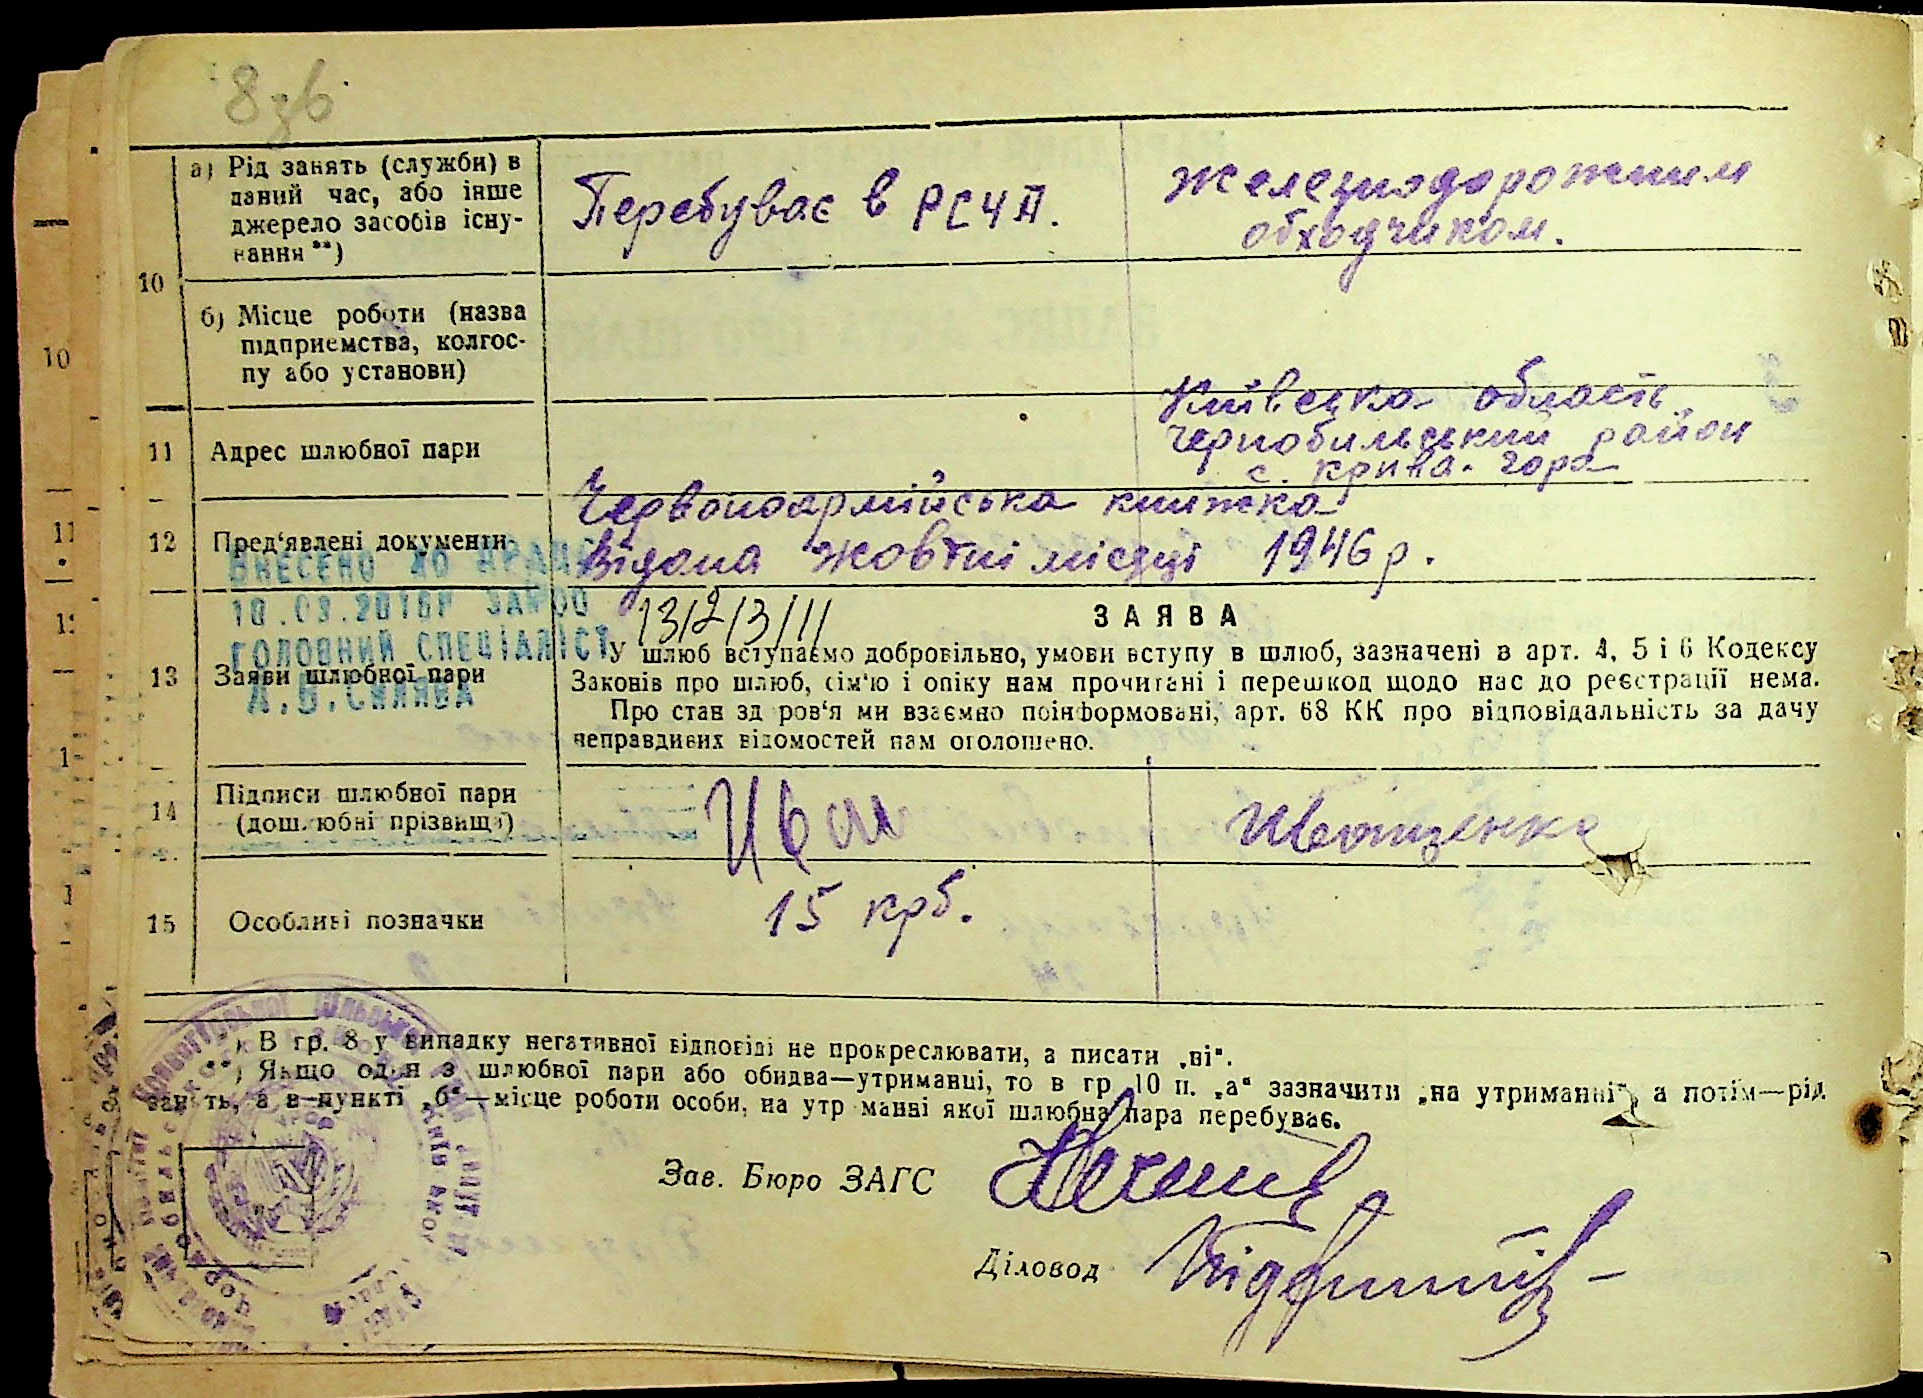 8зв
10
а) Рід занять (служби) в
даний час, або інше
джерело засобів існу-
вання**)
Перебуває в РСЧА.
железнодорожним
обходчиком.
б) Місце роботи (назва
підприємства, колгос-
пу або установи)
11 Адрес шлюбної пари
Київська область
Чернобильський район
с. Крива-гора
12 Пред'явлені документи
Червоноармійська книжка
Відана жовтні місяці 1946 р.
ВНЕСЕНО ДО ДРАЦС
ГОЛОВНИЙ СПЕЦІАЛІСТ
13 Заяви шлюбної пари
ЗАЯВА
У шлюб вступаємо добровільно, умови вступу в шлюб, зазначені в арт. 4, 5 і 6 Кодексу
Законів про шлюб, сім'ю і опіку нам прочитані і перешкод щодо нас до реєстрації нема.
Про стан здоров'я ми взаємно поінформовані, арт. 68 КК про відповідальність за дачу
неправдивих відомостей нам оголошено.
14 Підписи шлюбної пари
(дошлюбні прізвища)
Иващенко
15 Особливі позначки
15 крб.
*) В гр. 8 у випадку негативної відповіді не прокреслювати, а писати „ні“.
**) Якщо один з шлюбної пари або обидва—утриманці, то в гр. 10 п. „а“ зазначити „на утриманні“, а потім—рід
занять, а в пункті „б“—місце роботи особи, на утриманні якої шлюбна пара перебуває.
Зав. Бюро ЗАГС
Діловод